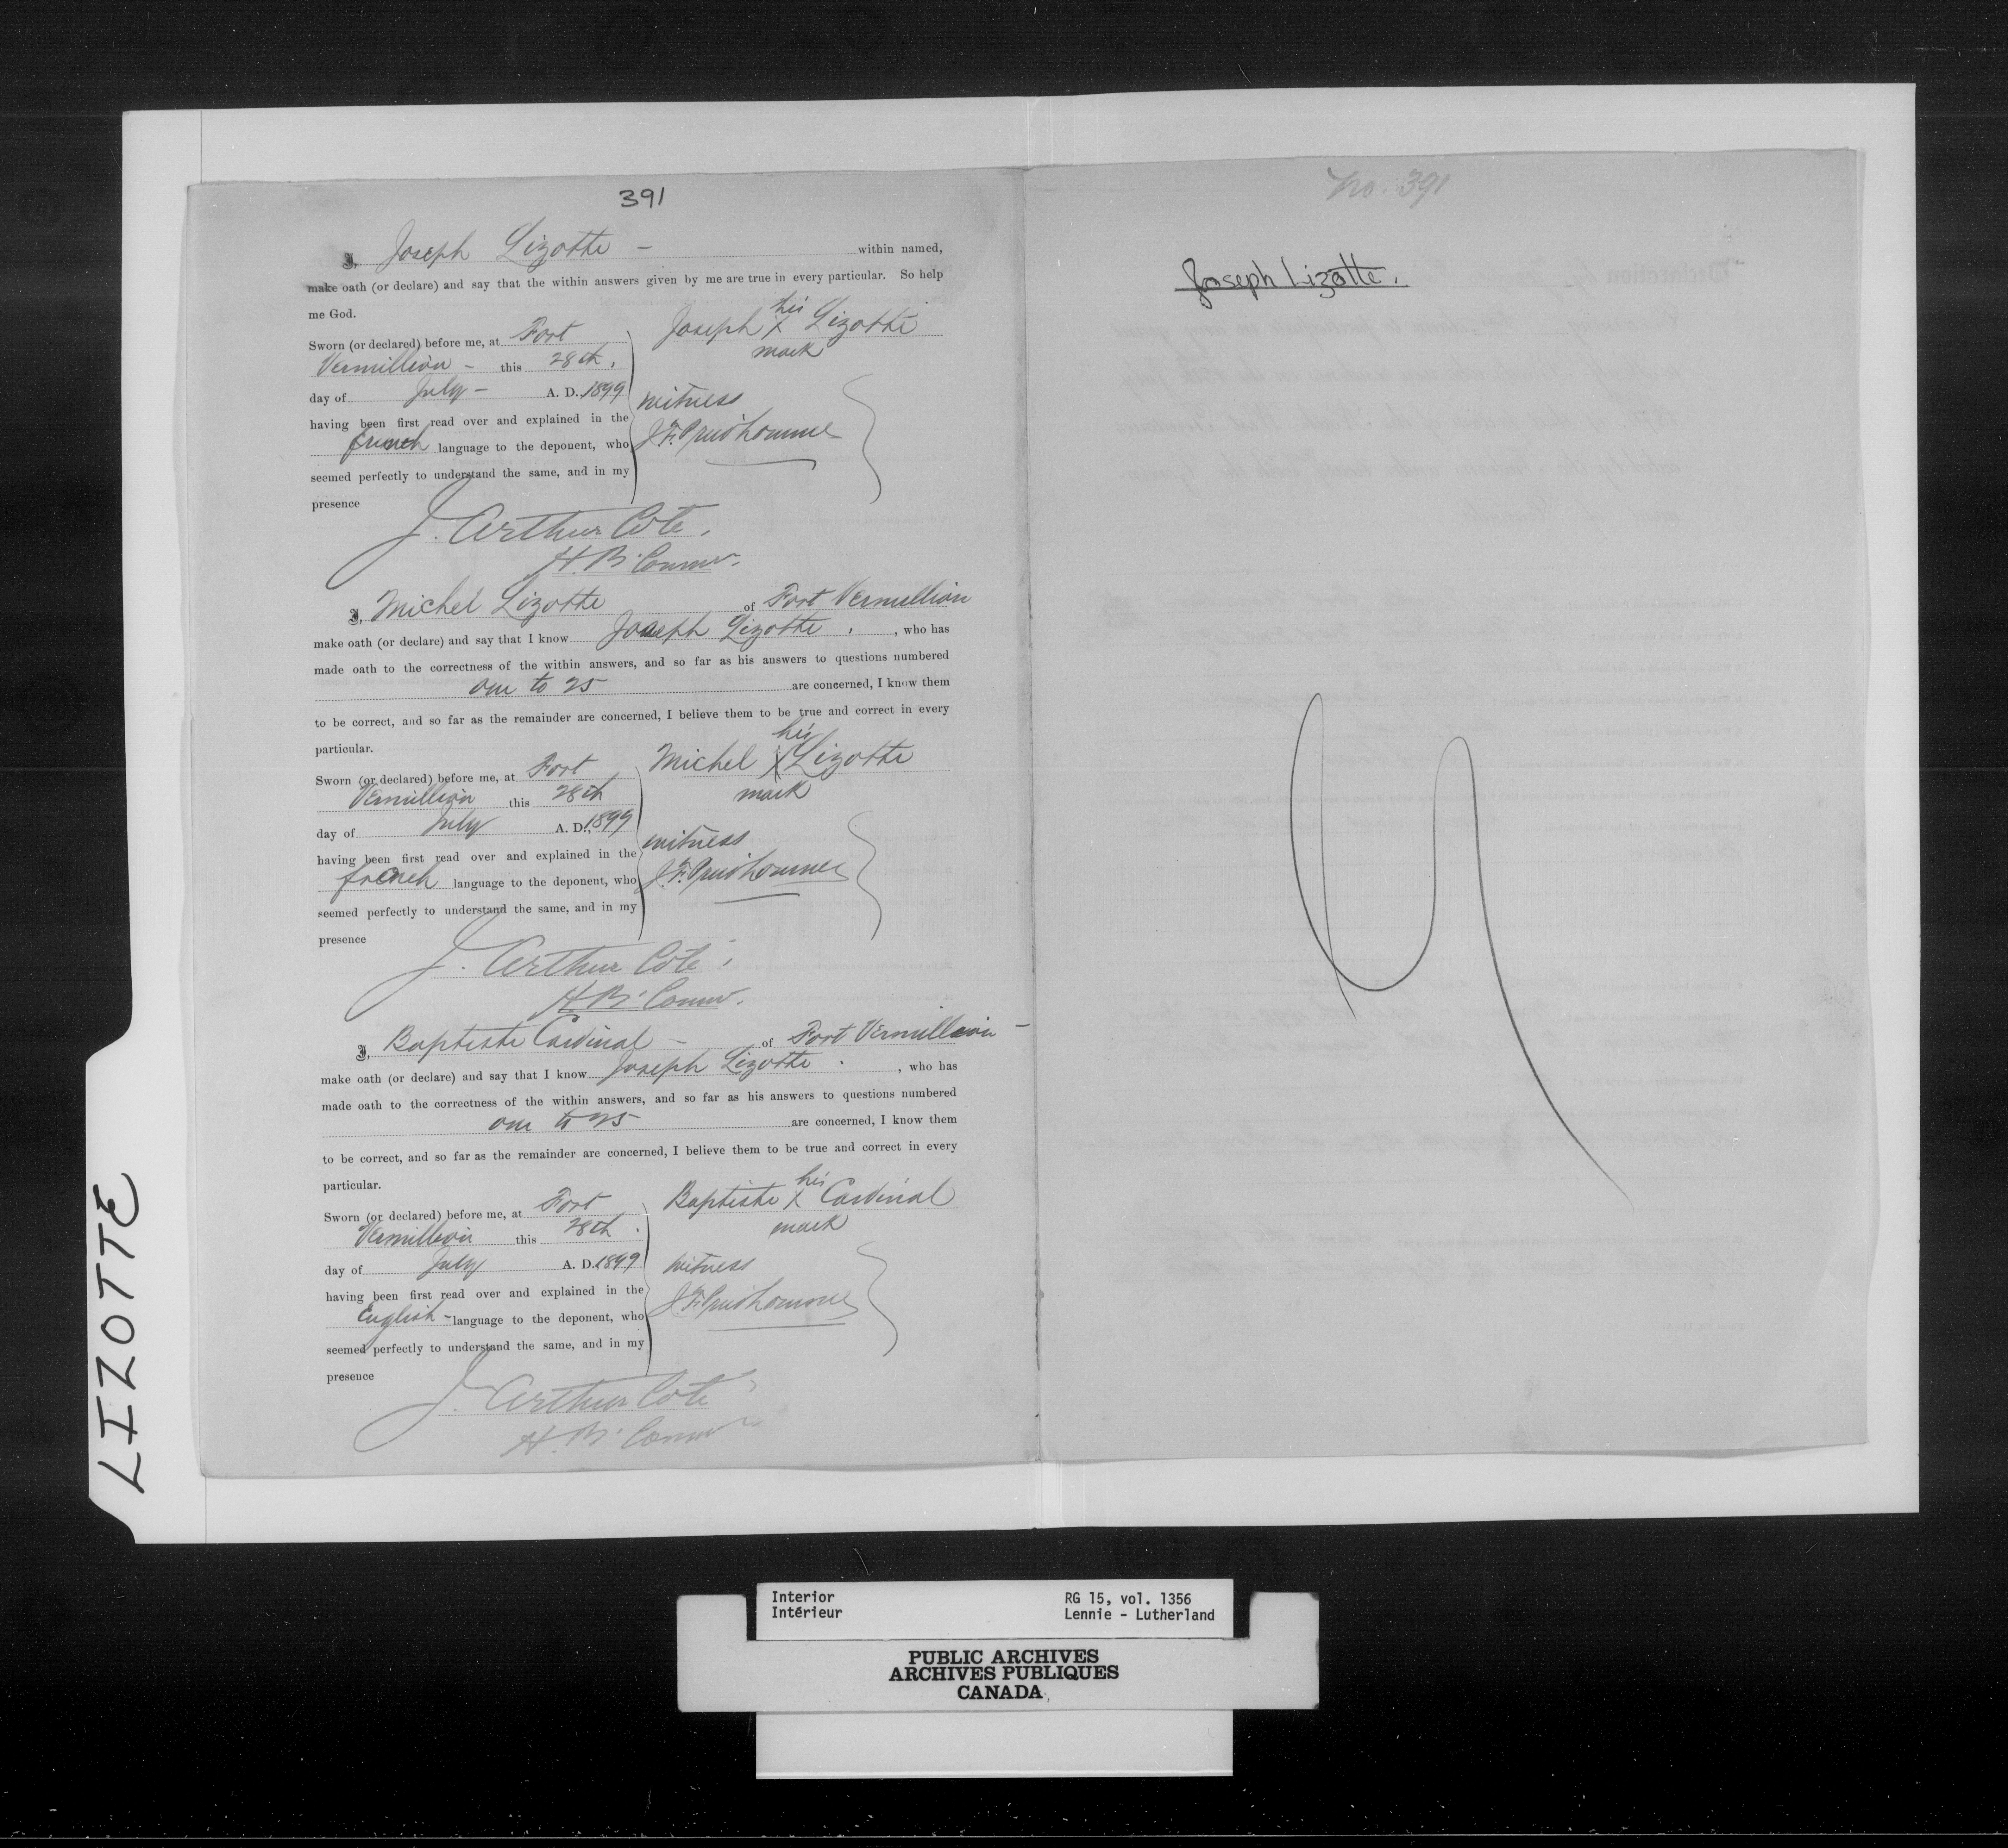 391
I, Joseph Lizotte — within named,
make oath (or declare) and say that the within answers given by me are true in every particular. So help
me God.
Sworn (or declared) before me, at Fort
Vermillion — this 28th,
day of July — A. D. 1899
having been first read over and explained in the
french language to the deponent, who
seemed perfectly to understand the same, and in my
presence
Joseph his X mark Lizotte
witness
J. F. Prud'homme
J. Arthur Coté,
H. B. Commr.
I, Michel Lizotte of Fort Vermillion
make oath (or declare) and say that I know Joseph Lizotte, who has
made oath to the correctness of the within answers, and so far as his answers to questions numbered
one to 25 are concerned, I know them
to be correct, and so far as the remainder are concerned, I believe them to be true and correct in every
particular.
Sworn (or declared) before me, at Fort
Vermillion this 28th
day of July A. D., 1899
having been first read over and explained in the
french language to the deponent, who
seemed perfectly to understand the same, and in my
presence
Michel his X mark Lizotte
witness
J. F. Prud'homme
J. Arthur Coté,
H. B. Commr.
I, Baptiste Cardinal — of Fort Vermillion —
make oath (or declare) and say that I know Joseph Lizotte, who has
made oath to the correctness of the within answers, and so far as his answers to questions numbered
one to 25 are concerned, I know them
to be correct, and so far as the remainder are concerned, I believe them to be true and correct in every
particular.
Sworn (or declared) before me, at Fort
Vermillion this 28th.
day of July A. D. 1899
having been first read over and explained in the
English — language to the deponent, who
seemed perfectly to understand the same, and in my
presence
Baptiste his X mark Cardinal
witness
J. F. Prud'homme
J. Arthur Coté
H. B. Commr
No. 391
Joseph Lizotte.
LIZOTTE
Interior
Intérieur
RG 15, vol. 1356
Lennie - Lutherland
PUBLIC ARCHIVES
ARCHIVES PUBLIQUES
CANADA